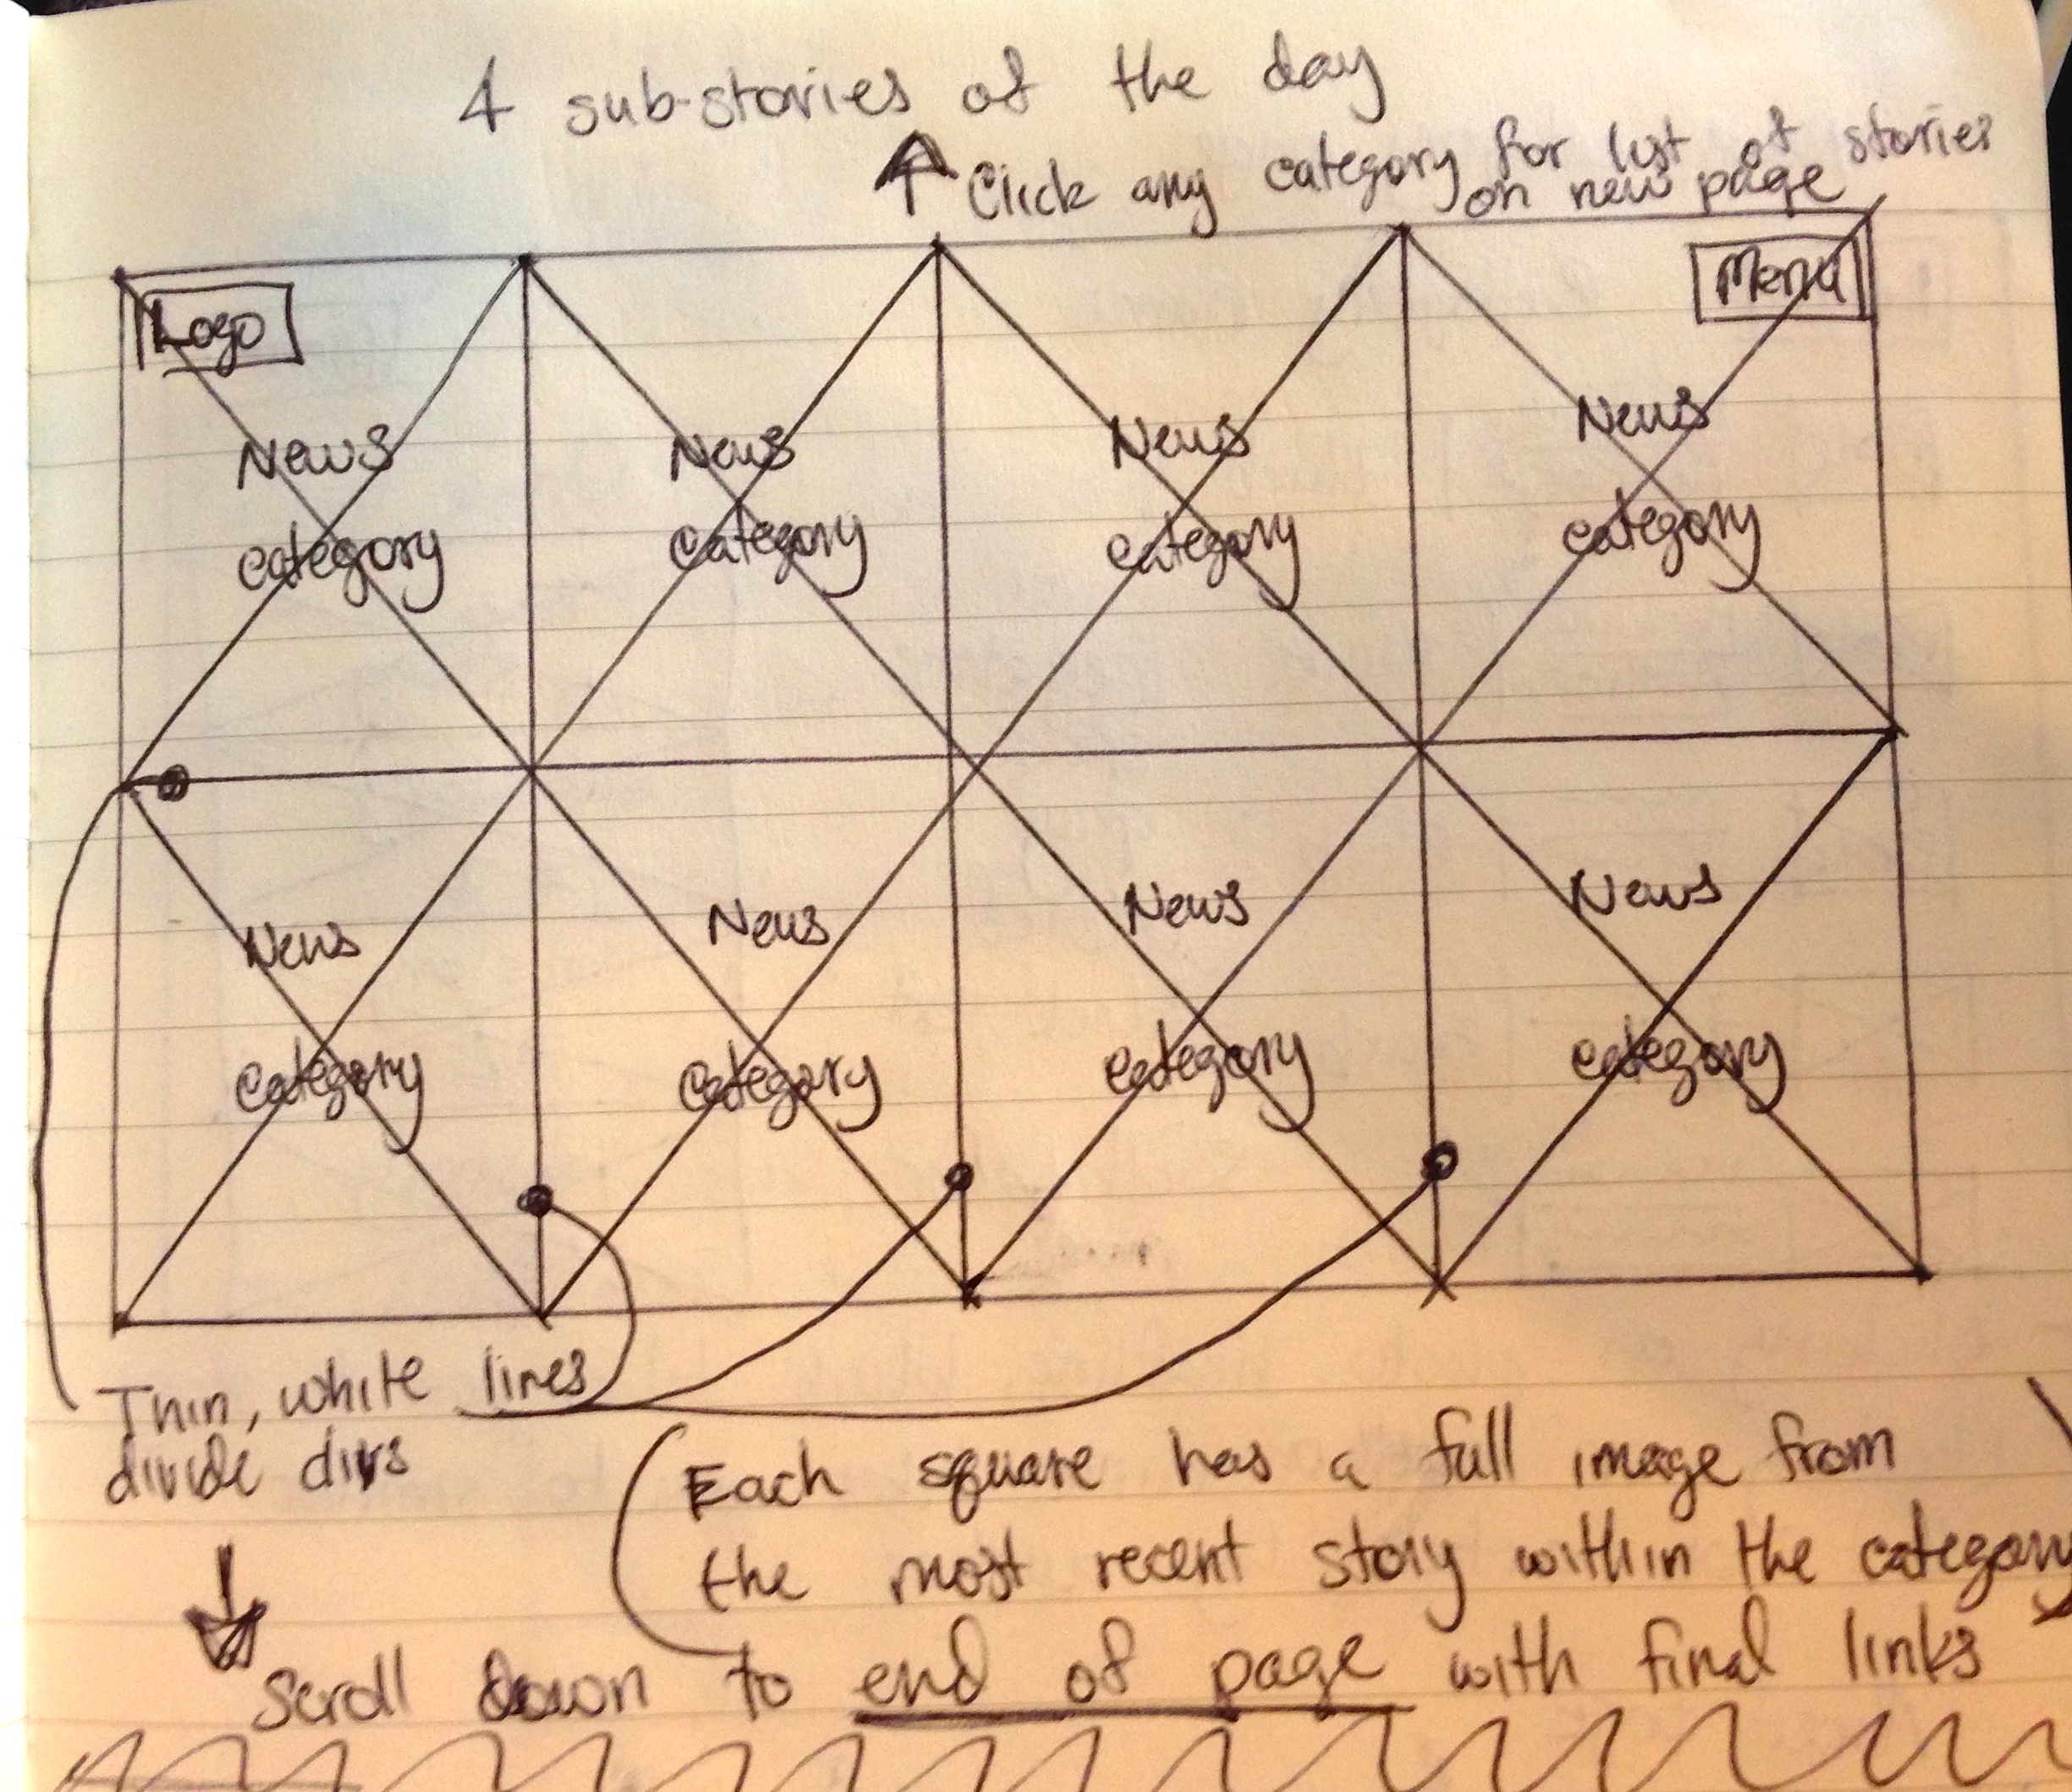 4 sub-stories of the day
Click any category for list of stories
on new page
Logo
Menu
News
category
News
category
News
category
News
category
News
category
News
category
News
category
News
category
Thin, white lines
divide divs
(Each square has a full image from
the most recent story within the category)
Scroll down to end of page with final links